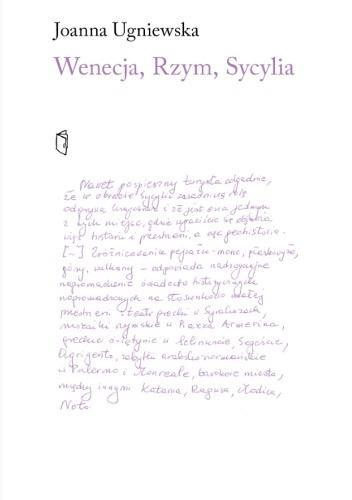 Joanna Ugniewska
Wenecja, Rzym, Sycylia
Nawet pospieszny turysta odgadnie,
że w obrazie Sycylii zasadniczą rolę
odgrywa krajobraz i że jest ona jednym
z tych miejsc, gdzie wyraziście się objawia
więź historii i przestrzeni, a więc geohistoria.
[...] Zróżnicowaniu pejzażu - morze, płaskowyże,
góry, wulkany - odpowiada nadzwyczajne
nagromadzenie osadów historycznych
nagromadzonych na stosunkowo małej
przestrzeni: teatr grecki w Syrakuzach,
mozaiki rzymskie w Piazza Armerina,
greckie świątynie w Selinuncie, Segeście,
Agrigento, zabytki arabsko-normańskie
w Palermo i Monreale, barokowe miasta,
między innymi Katania, Ragusa, Modica,
Noto.